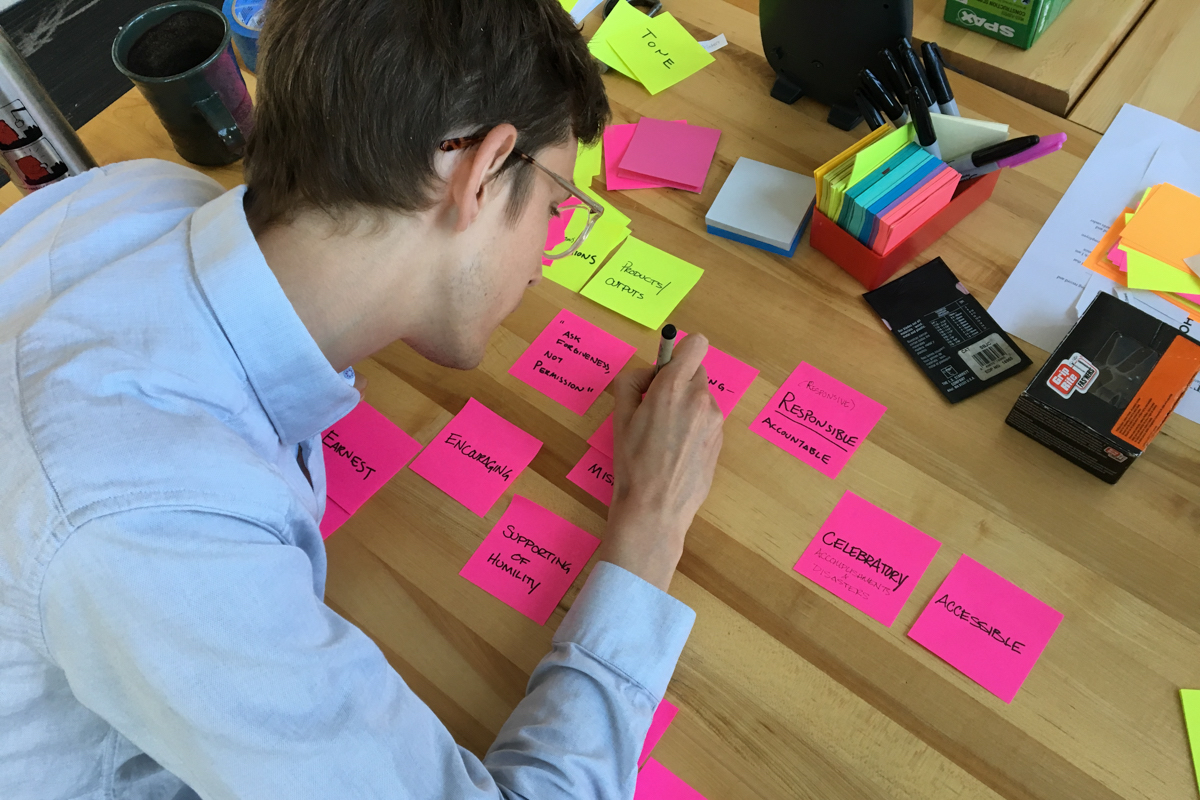 SPAX
TONE
PRODUCTS/
OUTPUTS
"ASK
FORGIVENESS,
NOT
PERMISSION"
(RESPONSIVE)
RESPONSIBLE
ACCOUNTABLE
EARNEST
ENCOURAGING
SUPPORTING
OF
HUMILITY
CELEBRATORY
ACCOMPLISHMENTS
&
DISASTERS
ACCESSIBLE
Grip
Rite